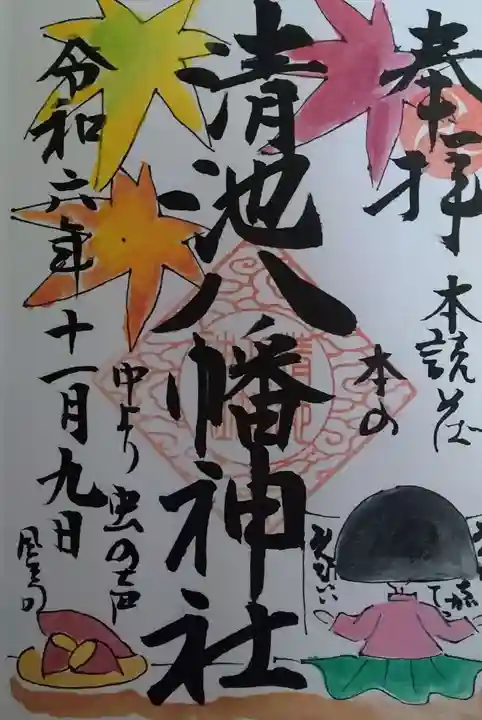 奉拝
本読めば
本の
清池八幡神社
中より
虫の声
令和六年十一月九日